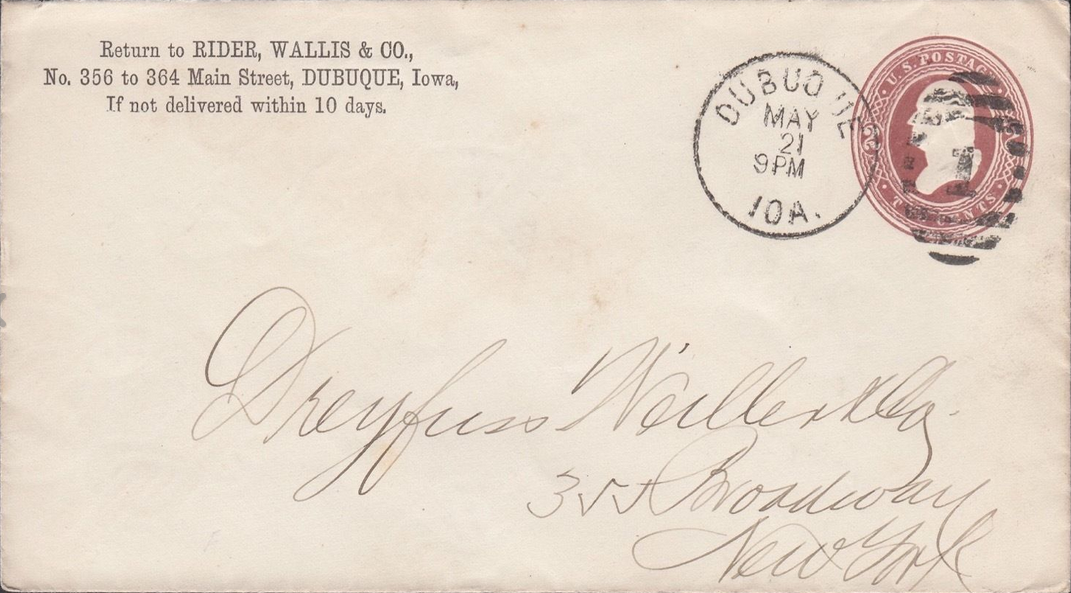 Return to RIDER, WALLIS & CO.,
No. 356 to 364 Main Street, DUBUQUE, Iowa,
If not delivered within 10 days.
DUBUQUE
MAY
21
9PM
IOA.
U.S. POSTAGE
TWO CENTS
1
Dreyfuss Weiller & Co.
355 Broadway
New York